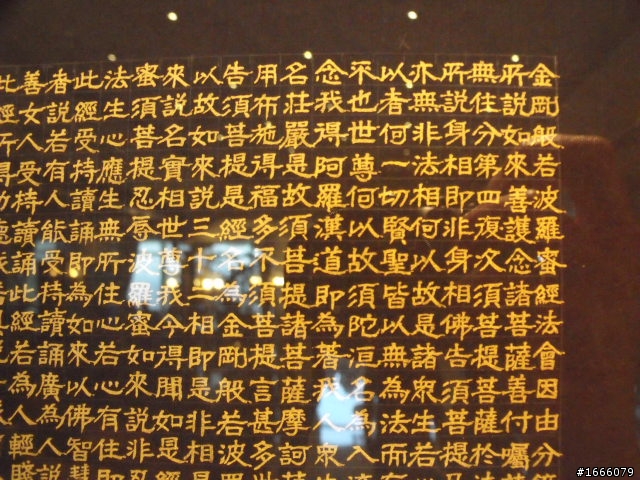 金剛般若波羅蜜經法會因由分第
所說如來善護念諸菩薩善付囑
無住分第四復次須菩提菩薩於法
所說身相即非身相佛告須菩提
亦無非法相何以故是諸眾生若
以者何一切賢聖皆以無為法而有
不也世尊何以故須陀洹名為入
念我得阿羅漢道即為著我人眾
名莊嚴是故須菩提諸菩薩摩訶
用布施得福多不須菩提言甚多世
告須菩提是經名為金剛般若波羅
以故如來說三十二相即是非相是
來說名實相世尊我今得聞如是
蜜須菩提忍辱波羅蜜如來說非忍
法生心應生無所住心若心有住即
此經受持讀誦即為如來以佛智慧
者說若有人能受持讀誦廣為人說
善女人受持讀誦此經若為人輕賤
此經所得
#1666079